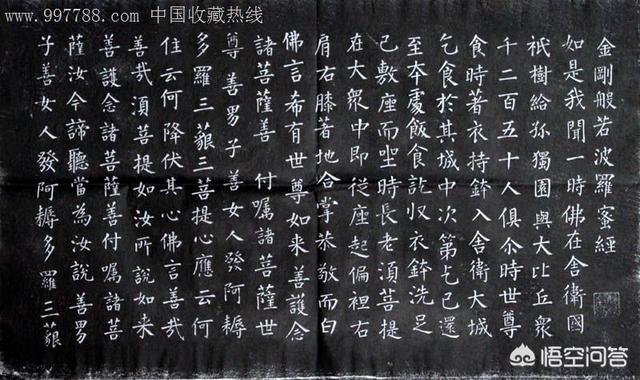 www.997788.com 中国收藏热线
金剛般若波羅蜜經
如是我聞一時佛在舍衛國
祇樹給孤獨園與大比丘衆
千二百五十人俱尒時世尊
食時著衣持鉢入舍衛大城
乞食於其城中次第乞已還
至本處飯食訖収衣鉢洗足
已敷座而坐時長老湏菩提
在大衆中即從座起偏袒右
肩右膝著地合掌恭敬而白
佛言希有世尊如来善護念
諸菩薩善付囑諸菩薩世
尊善男子善女人發阿耨
多羅三藐三菩提心應云何
住云何降伏其心佛言善哉
善哉湏菩提如汝所說如来
善護念諸菩薩善付囑諸菩
薩汝今諦聽當為汝說善男
子善女人發阿耨多羅三藐
悟空问答